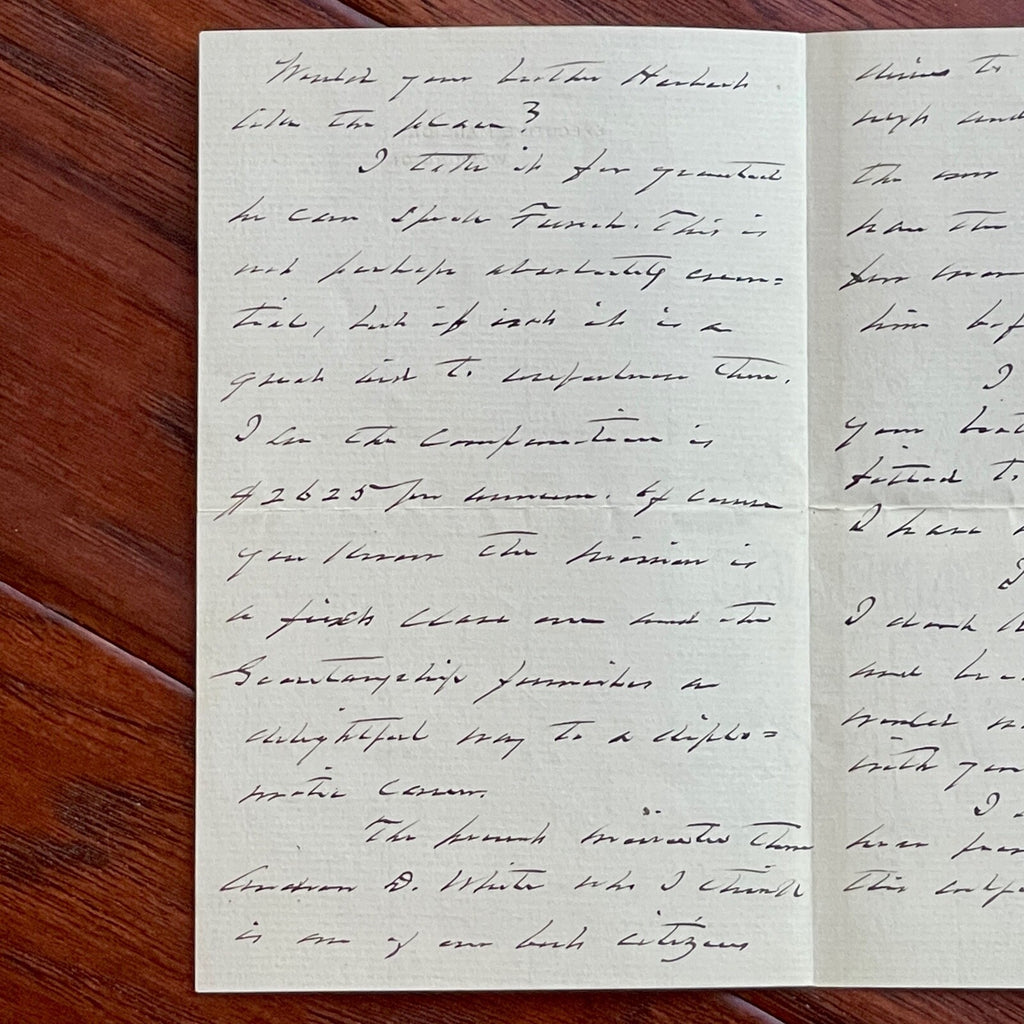 Would your brother Herbert
like the place?
I take it for granted
he can speak French. This is
not perhaps absolutely essen=
tial, but if not it is a
great aid to usefulness there.
I see the compensation is
$2625 per annum. Of course
you know the mission is
a first class one and the
Secretaryship furnishes a
delightful way to a diplo=
matic career.
The present minister there
Andrew D. White who I think
is one of our best citizens
to
and
the
have the
for
him bef
I
your brot
fitted to
I have
I
and
would
with you
I
have
this